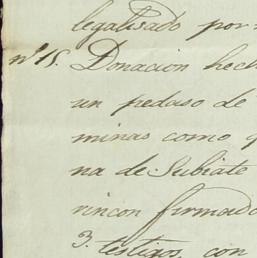 legalisado por
nº 15. Donacion hech
un pedaso de
minas como q
na de Subiate
rincon firmado
3. testigos con